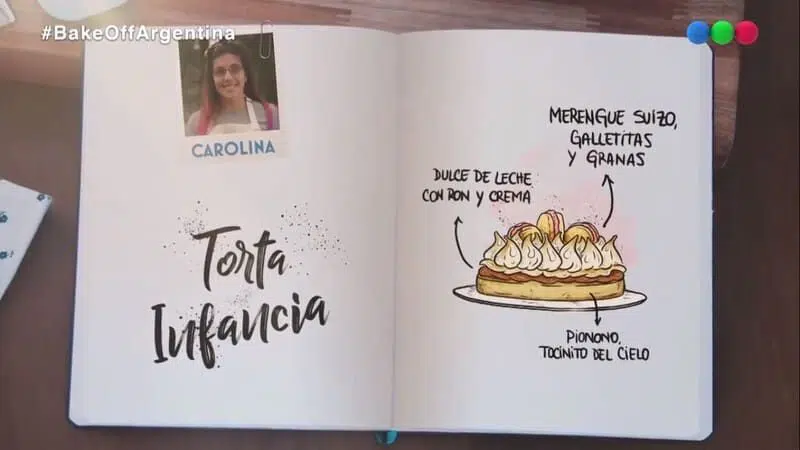 #BakeOffArgentina
CAROLINA
Torta
Infancia
MERENGUE SUIZO,
GALLETITAS
Y GRANAS
DULCE DE LECHE
CON RON Y CREMA
PIONONO,
TOCINITO DEL CIELO